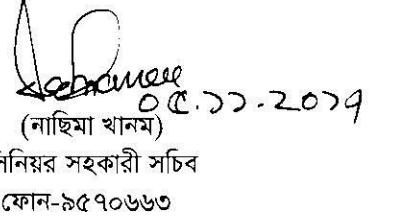 ০৫.১১.২০১৭
(নাছিমা খানম)
সিনিয়র সহকারী সচিব
ফোন-৯৫৭০৬৬৩